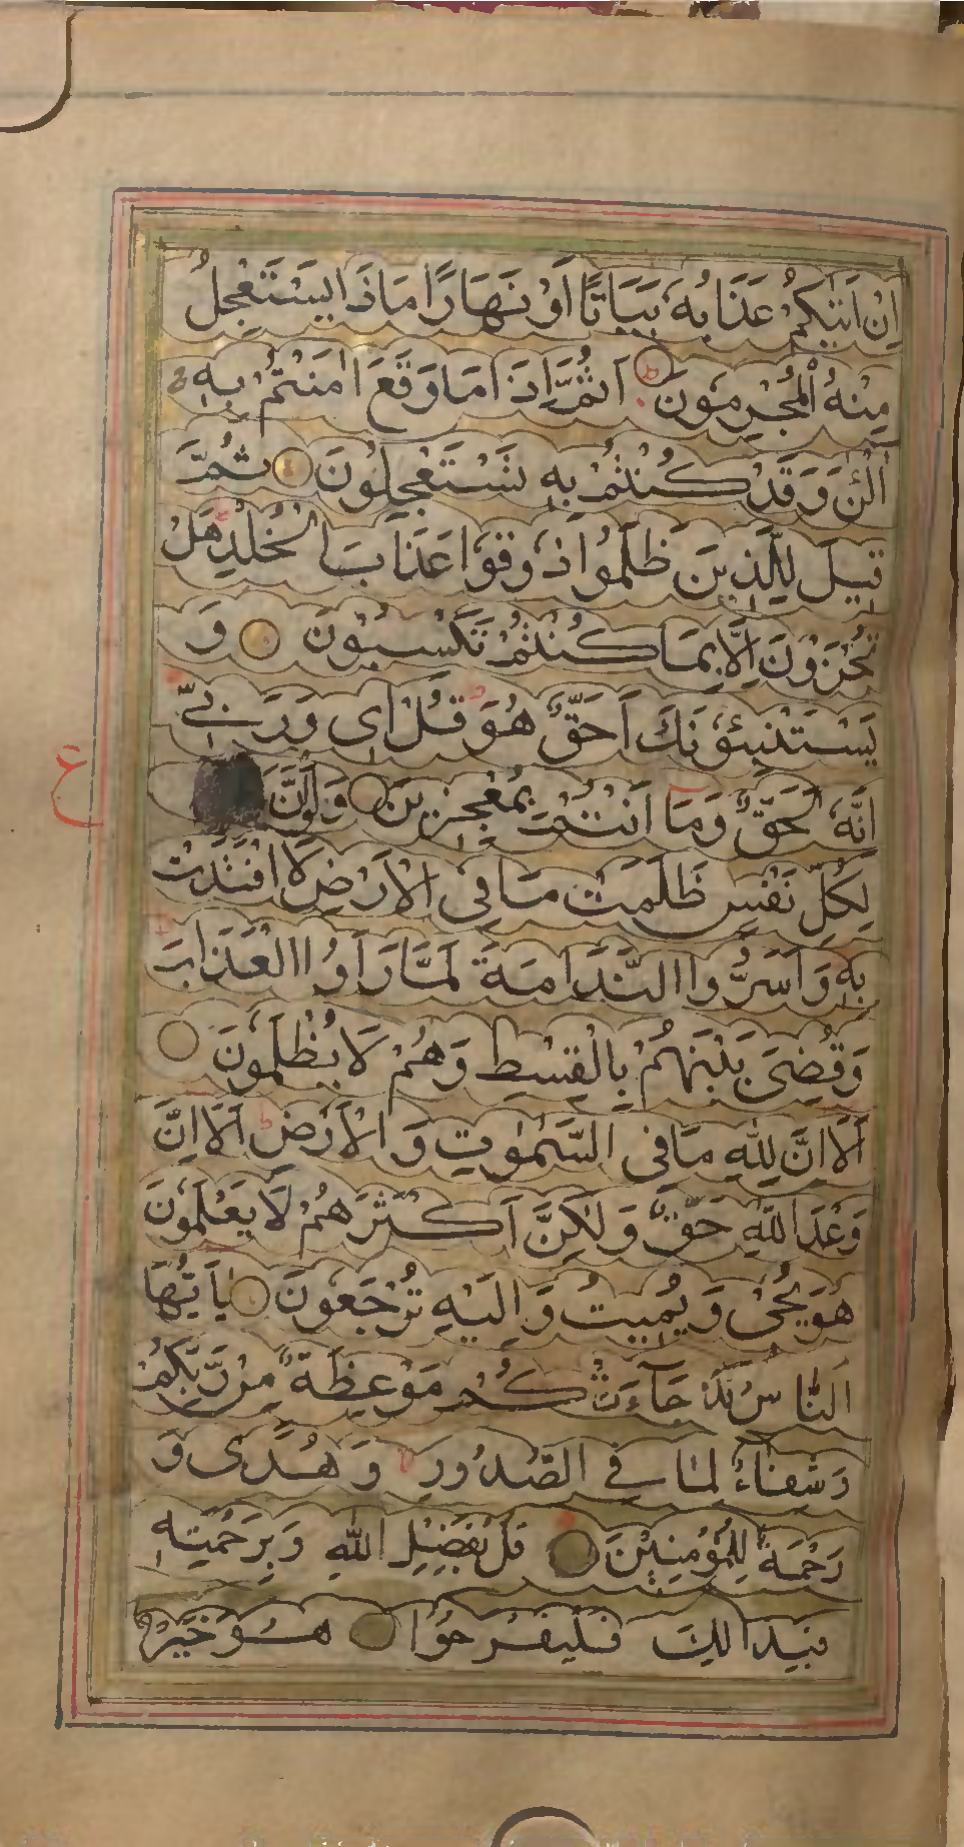 اِنْ اَتٰىكُمْ عَذَابُهٗ بَيَاتًا اَوْ نَهَارًا مَاذَا يَسْتَعْجِلُ
مِنْهُ الْمُجْرِمُوْنَ ط اَثُمَّ اِذَا مَا وَقَعَ اٰمَنْتُمْ بِهٖ
آٰلْئٰنَ وَ قَدْ كُنْتُمْ بِهٖ تَسْتَعْجِلُوْنَ ثُمَّ
قِيْلَ لِلَّذِيْنَ ظَلَمُوْا ذُوْقُوْا عَذَابَ الْخُلْدِ هَلْ
تُجْزَوْنَ اِلَّا بِمَا كُنْتُمْ تَكْسِبُوْنَ وَ
يَسْتَنْبِئُوْنَكَ اَحَقٌّ هُوَ قُلْ اِیْ وَ رَبِّیْ
اِنَّهٗ لَحَقٌّ وَ مَا اَنْتُمْ بِمُعْجِزِيْنَ وَ لَوْ اَنَّ
لِكُلِّ نَفْسٍ ظَلَمَتْ مَا فِی الْاَرْضِ لَافْتَدَتْ
بِهٖ وَ اَسَرُّوا النَّدَامَةَ لَمَّا رَاَوُا الْعَذَابَ
وَ قُضِیَ بَيْنَهُمْ بِالْقِسْطِ وَ هُمْ لَا يُظْلَمُوْنَ
اَلَا اِنَّ لِلّٰهِ مَا فِی السَّمٰوٰتِ وَ الْاَرْضِ ط اَلَا اِنَّ
وَعْدَ اللّٰهِ حَقٌّ وَّ لٰكِنَّ اَكْثَرَهُمْ لَا يَعْلَمُوْنَ
هُوَ يُحْیٖ وَ يُمِيْتُ وَ اِلَيْهِ تُرْجَعُوْنَ يٰاَيُّهَا
النَّاسُ قَدْ جَآءَتْكُمْ مَوْعِظَةٌ مِنْ رَّبِّكُمْ
وَ شِفَاءٌ لِمَا فِی الصُّدُوْرِ وَ هُدًی وَ
رَحْمَةٌ لِلْمُؤْمِنِيْنَ قُلْ بِفَضْلِ اللّٰهِ وَ بِرَحْمَتِهٖ
فَبِذٰلِكَ فَلْيَفْرَحُوْا هُوَ خَيْرٌ
ع